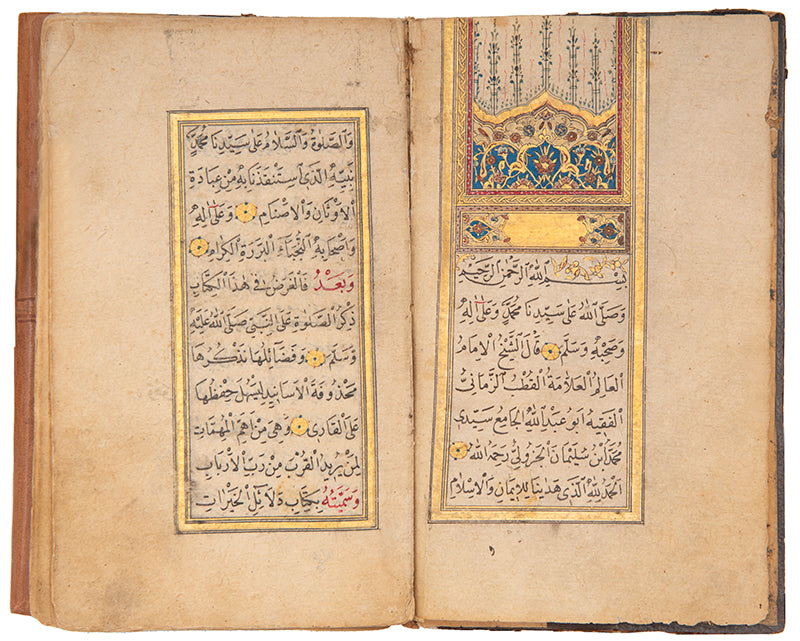 بِسْمِ اللهِ الرَّحْمٰنِ الرَّحِيمِ
وَصَلَّى اللهُ عَلٰى سَيِّدِنَا مُحَمَّدٍ وَعَلٰى اٰلِهِ
وَصَحْبِهِ وَسَلَّمَ قَالَ الشَّيْخُ الْاِمَامُ
الْعَالِمُ الْعَلَّامَةُ الْقُطْبُ الزَّمَانِيُّ
الْفَقِيهُ اَبُو عَبْدِ اللهِ الْجَامِعُ سَيِّدِي
مُحَمَّدُ ابْنُ سُلَيْمَانَ الْجَزُولِيُّ رَحِمَهُ اللهُ
الْحَمْدُ لِلّٰهِ الَّذِي هَدٰينَا لِلْاِيمَانِ وَالْاِسْلَامِ
وَالصَّلٰوةُ وَالسَّلَامُ عَلٰى سَيِّدِنَا مُحَمَّدٍ
نَبِيِّهِ الَّذِي اسْتَنْقَذَنَا بِهِ مِنْ عِبَادَةِ
الْاَوْثَانِ وَالْاَصْنَامِ وَعَلٰى اٰلِهِ
وَاَصْحَابِهِ النُّجَبَاءِ الْبَرَرَةِ الْكِرَامِ
وَبَعْدُ فَالْغَرَضُ فِي هٰذَا الْكِتَابِ
ذِكْرُ الصَّلٰوةِ عَلَى النَّبِيِّ صَلَّى اللهُ عَلَيْهِ
وَسَلَّمَ وَفَضَائِلُهَا نَذْكُرُهَا
مَحْذُوفَةَ الْاَسَانِيدِ لِيَسْهُلَ حِفْظُهَا
عَلَى الْقَارِئِ وَهِيَ مِنْ اَهَمِّ الْمُهِمَّاتِ
لِمَنْ يُرِيدُ الْقُرْبَ مِنْ رَبِّ الْاَرْبَابِ
وَسَمَّيْتُهُ بِكِتَابِ دَلَائِلِ الْخَيْرَاتِ